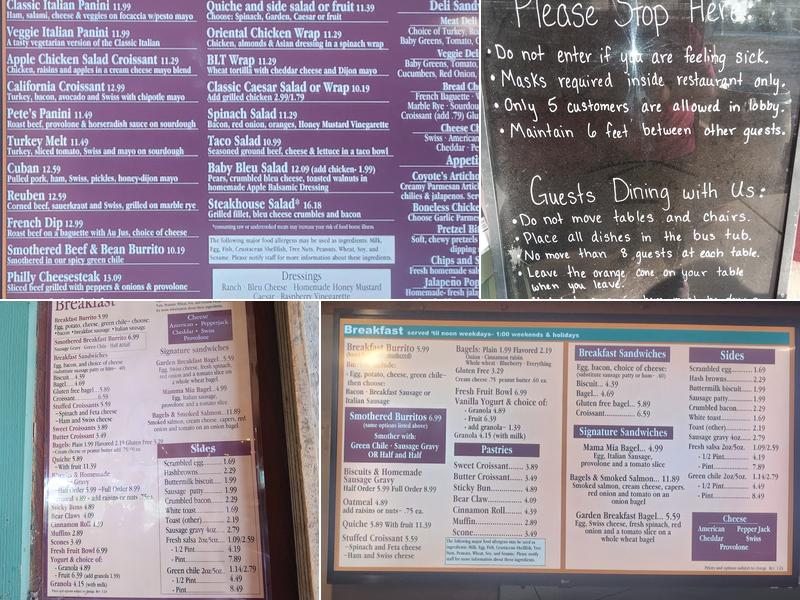 Classic Italian Panini 11.99
Ham, salami, cheese & veggies on focaccia w/pesto mayo
Veggie Italian Panini 11.99
A tasty vegetarian version of the Classic Italian
Apple Chicken Salad Croissant 11.29
Chicken, raisins and apples in a cream cheese mayo blend
California Croissant 12.99
Turkey, bacon, avocado and Swiss with chipotle mayo
Pete's Panini 11.49
Roast beef, provolone & horseradish sauce on sourdough
Turkey Melt 11.49
Turkey, sliced tomato, Swiss and mayo on sourdough
Cuban 12.59
Pulled pork, ham, Swiss, pickles, honey-dijon mayo
Reuben 12.59
Corned beef, sauerkraut and Swiss, grilled on marble rye
French Dip 12.99
Roast beef on a baguette with Au Jus, choice of cheese
Smothered Beef & Bean Burrito 10.19
Smothered in our spicy green chile
Philly Cheesesteak 13.09
Sliced beef grilled with peppers & onions & provolone
Quiche and side salad or fruit 11.39
Choose: Spinach, Garden, Caesar or fruit
Oriental Chicken Wrap 11.29
Chicken, almonds & Asian dressing in a spinach wrap
BLT Wrap 11.29
Wheat tortilla with cheddar cheese and Dijon mayo
Classic Caesar Salad or Wrap 10.19
Add grilled chicken 2.99/1.79
Spinach Salad 11.29
Bacon, red onion, oranges, Honey Mustard Vinegarette
Taco Salad 10.99
Seasoned ground beef, cheese & lettuce in a taco bowl
Baby Bleu Salad 12.09 (add chicken- 1.99)
Pears, crumbled bleu cheese, toasted walnuts in
homemade Apple Balsamic Dressing
Steakhouse Salad* 16.18
Grilled fillet, bleu cheese crumbles and bacon
*consuming raw or undercooked meats may increase your risk of food borne illness
The following major food allergens may be used as ingredients: Milk,
Egg, Fish, Crustacean Shellfish, Tree Nuts, Peanuts, Wheat, Soy, and
Sesame. Please notify staff for more information about these ingredients.
Dressings
Ranch Bleu Cheese Homemade Honey Mustard
Caesar Raspberry Vinegarette
Deli Sand
Meat Deli
Choice of Turkey, Roa
Baby Greens, Tomato,
Veggie Del
Baby Greens, Tomato,
Cucumbers, Red Onion,
Bread Ch
French Baguette
Marble Rye Sourdou
Croissant (add .79) Glu
Cheese Ch
Swiss American
Cheddar Pe
Appetiz
Coyote's Articho
Creamy Parmesan Artic
chilies & jalapenos. Ser
Boneless Chicken
Choose Garlic Parme
Pretzel Bit
Soft, chewy pretzels
dipping
Chips and S
Fresh homemade sal
Jalapeño Pop
Homemade- fresh jala
Please Stop Here:
• Do not enter if you are feeling sick.
• Masks required inside restaurant only.
• Only 5 customers are allowed in lobby.
• Maintain 6 feet between other guests.
Guests Dining with Us:
• Do not move tables and chairs.
• Place all dishes in the bus tub.
No more than 8 guests at each table.
• Leave the orange cone on your table
when you leave.
Breakfast
Breakfast Burrito 5.99
Egg, potato, cheese, green chile~ choose:
•bacon •breakfast sausage •Italian sausage
Smothered Breakfast Burrito 6.99
Sausage Gravy Green Chile Half &Half
Breakfast Sandwiches
Egg, bacon, and choice of cheese
(substitute sausage patty or ham- .60)
Biscuit...4.39
Bagel......4.69
Gluten free bagel...5.89
Croissant........6.59
Stuffed Croissants 5.59
~Spinach and Feta cheese
~Ham and Swiss cheese
Sweet Croissants 3.89
Butter Croissant 3.49
Bagels: Plain 1.99 Flavored 2.19 Gluten Free 3.29
~Cream cheese or peanut butter add .75/.60 ea.
Quiche 5.89
~With fruit 11.39
Biscuits & Homemade
Sausage Gravy
Half Order 5.99 ~Full Order 8.99
Oatmeal 4.89 ~ add raisins or nuts .75ea.
Sticky Buns 4.89
Bear Claws 4.09
Cinnamon Roll 4.39
Muffins 2.89
Scones 3.49
Fresh Fruit Bowl 6.99
Yogurt & choice of:
- Granola 4.89
- Fruit 6.39 (add granola 1.39)
Granola 4.15 (with milk)
Cheese
American • Pepperjack
Cheddar • Swiss
Provolone
Signature sandwiches
Garden Breakfast Bagel...5.59
Egg, Swiss cheese, fresh spinach,
red onion and tomato slice on a
whole wheat bagel.
Mamma Mia Bagel...4.99
Egg, Italian sausage,
provolone and a tomato slice.
Bagels & Smoked Salmon...11.89
Smoked salmon, cream cheese, capers,
red onion and tomato on an onion bagel.
Sides
Scrambled egg......1.69
Hashbrowns.......2.29
Buttermilk biscuit......1.99
Sausage patty......1.99
Crumbled bacon......2.29
White toast......1.69
Toast (other)......2.19
Sausage gravy 4oz......2.79
Fresh salsa 2oz/5oz...1.09/2.59
- 1/2 Pint......4.19
- Pint......7.89
Green chile 2oz/5oz...1.14/2.79
- 1/2 Pint......4.49
- Pint......8.49
Breakfast served 'til noon weekdays~ 1:00 weekends & holidays
Breakfast Burrito 5.99
Egg, potato, cheese, green chile~
then choose:
Bacon · Breakfast Sausage or
Italian Sausage
Smothered Burritos 6.99
(same options listed above)
Smother with:
Green Chile · Sausage Gravy
OR Half and Half
Biscuits & Homemade
Sausage Gravy
Half Order 5.99 Full Order 8.99
Oatmeal 4.89
add raisins or nuts~ .75 ea.
Quiche 5.89 With fruit 11.39
Stuffed Croissant 5.59
~Spinach and Feta cheese
~Ham and Swiss cheese
Bagels: Plain 1.99 Flavored 2.19
Onion · Cinnamon raisin
Whole wheat · Blueberry · Everything
Gluten Free 3.29
Cream cheese .75 peanut butter .60 ea.
Fresh Fruit Bowl 6.99
Vanilla Yogurt & choice of:
- Granola 4.89
- Fruit 6.39
- add granola~ 1.39
Granola 4.15 (with milk)
Pastries
Sweet Croissant.... 3.89
Butter Croissant.... 3.49
Sticky Bun........ 4.89
Bear Claw........ 4.09
Cinnamon Roll..... 4.39
Muffin........ 2.89
Scone........ 3.49
The following major food allergens may be used as
ingredients: Milk, Egg, Fish, Crustacean Shellfish, Tree
Nuts, Peanuts, Wheat, Soy, and Sesame. Please notify
staff for more information about these ingredients.
Breakfast Sandwiches
Egg, bacon, choice of cheese:
(substitute sausage patty or ham~ .60)
Biscuit... 4.39
Bagel... 4.69
Gluten free bagel... 5.89
Croissant............ 6.59
Signature Sandwiches
Mama Mia Bagel... 4.99
Egg, Italian Sausage,
provolone and a tomato slice
Bagels & Smoked Salmon... 11.89
Smoked salmon, cream cheese, capers,
red onion and tomato on an onion
bagel
Garden Breakfast Bagel... 5.59
Egg, Swiss cheese, fresh spinach, red
onion and a tomato slice
on a whole wheat bagel
Sides
Scrambled egg......1.69
Hash browns......2.29
Buttermilk biscuit......1.99
Sausage patty......1.99
Crumbled bacon......2.29
White toast......1.69
Toast (other)......2.19
Sausage gravy 4oz......2.79
Fresh salsa 2oz/5oz. 1.09/2.59
- 1/2 Pint......4.19
- Pint......7.89
Green chile 2oz/5oz. 1.14/2.79
- 1/2 Pint......4.49
- Pint......8.49
Cheese
American Pepper Jack
Cheddar Swiss
Provolone
Prices and options subject to change